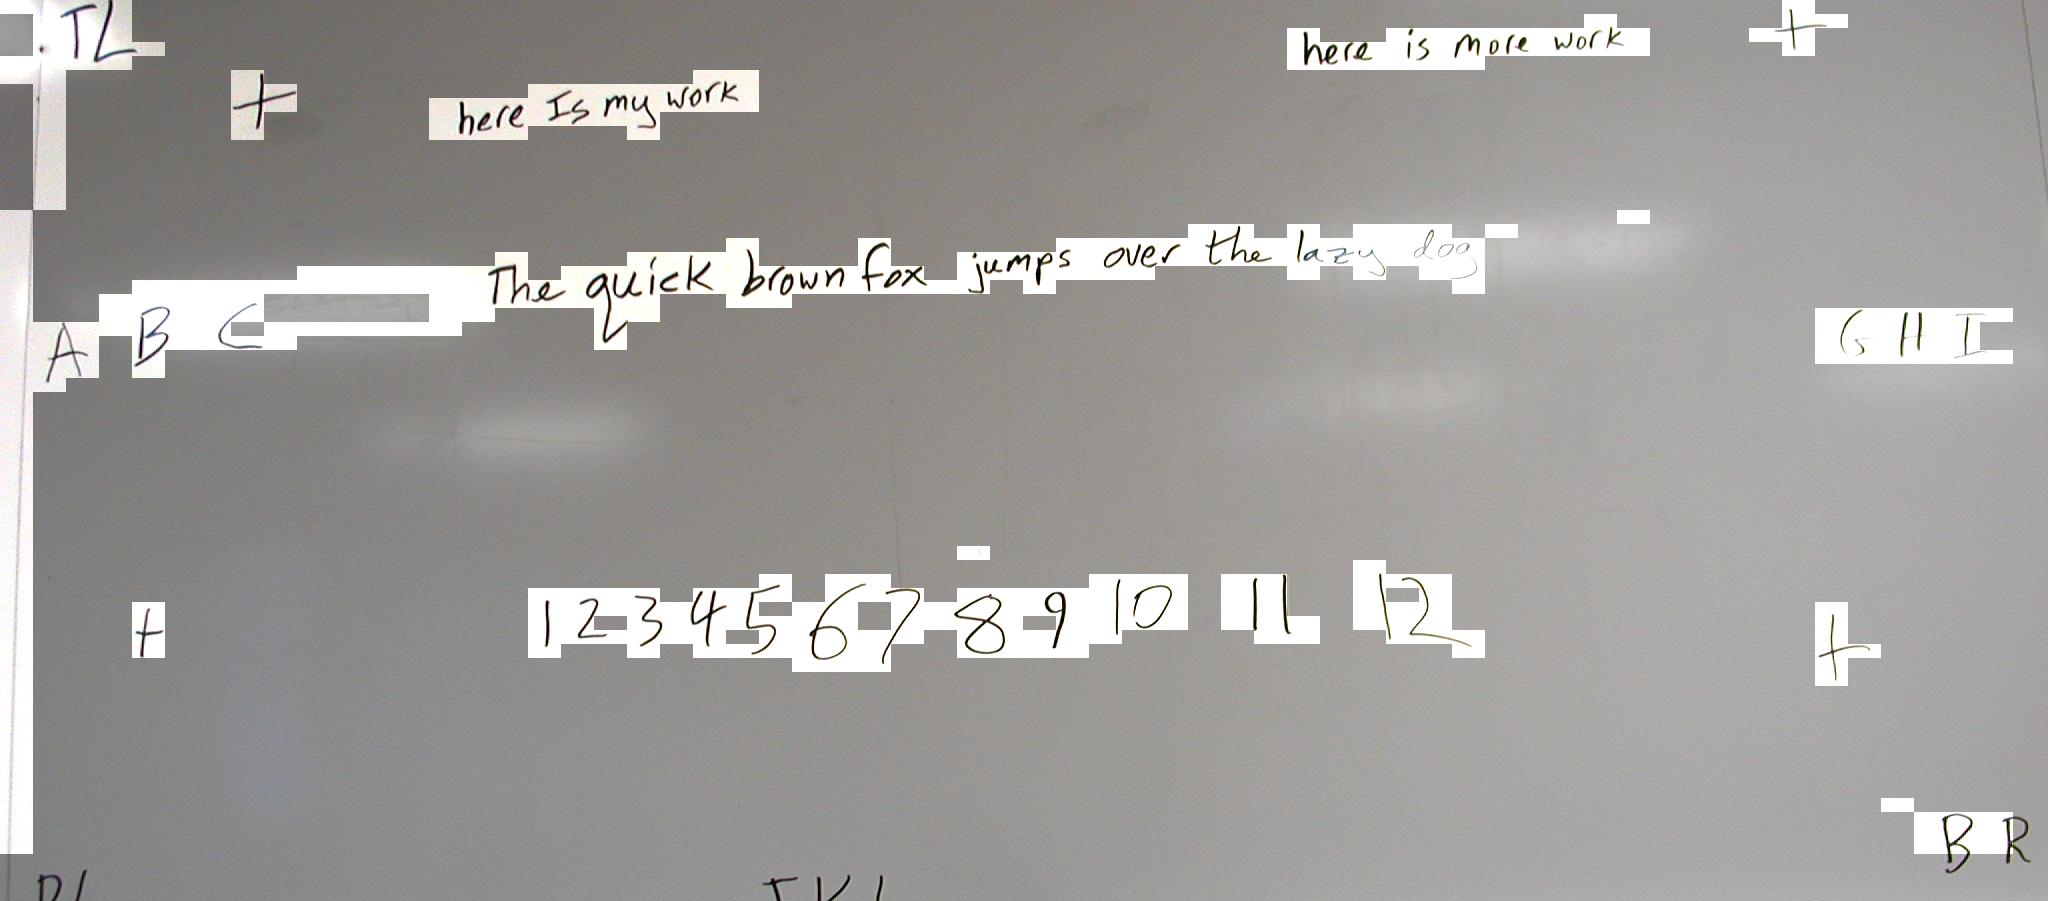 TL
here is more work
+
+
here Is my work
The quick brown fox jumps over the lazy dog
A B C
G H I
+
1 2 3 4 5 6 7 8 9 10 11 12
+
B R